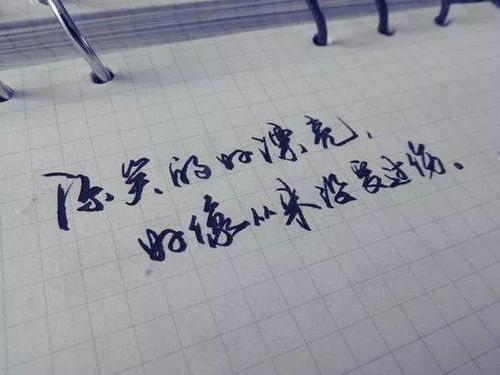 你笑的好漂亮，
好像从来没受过伤。